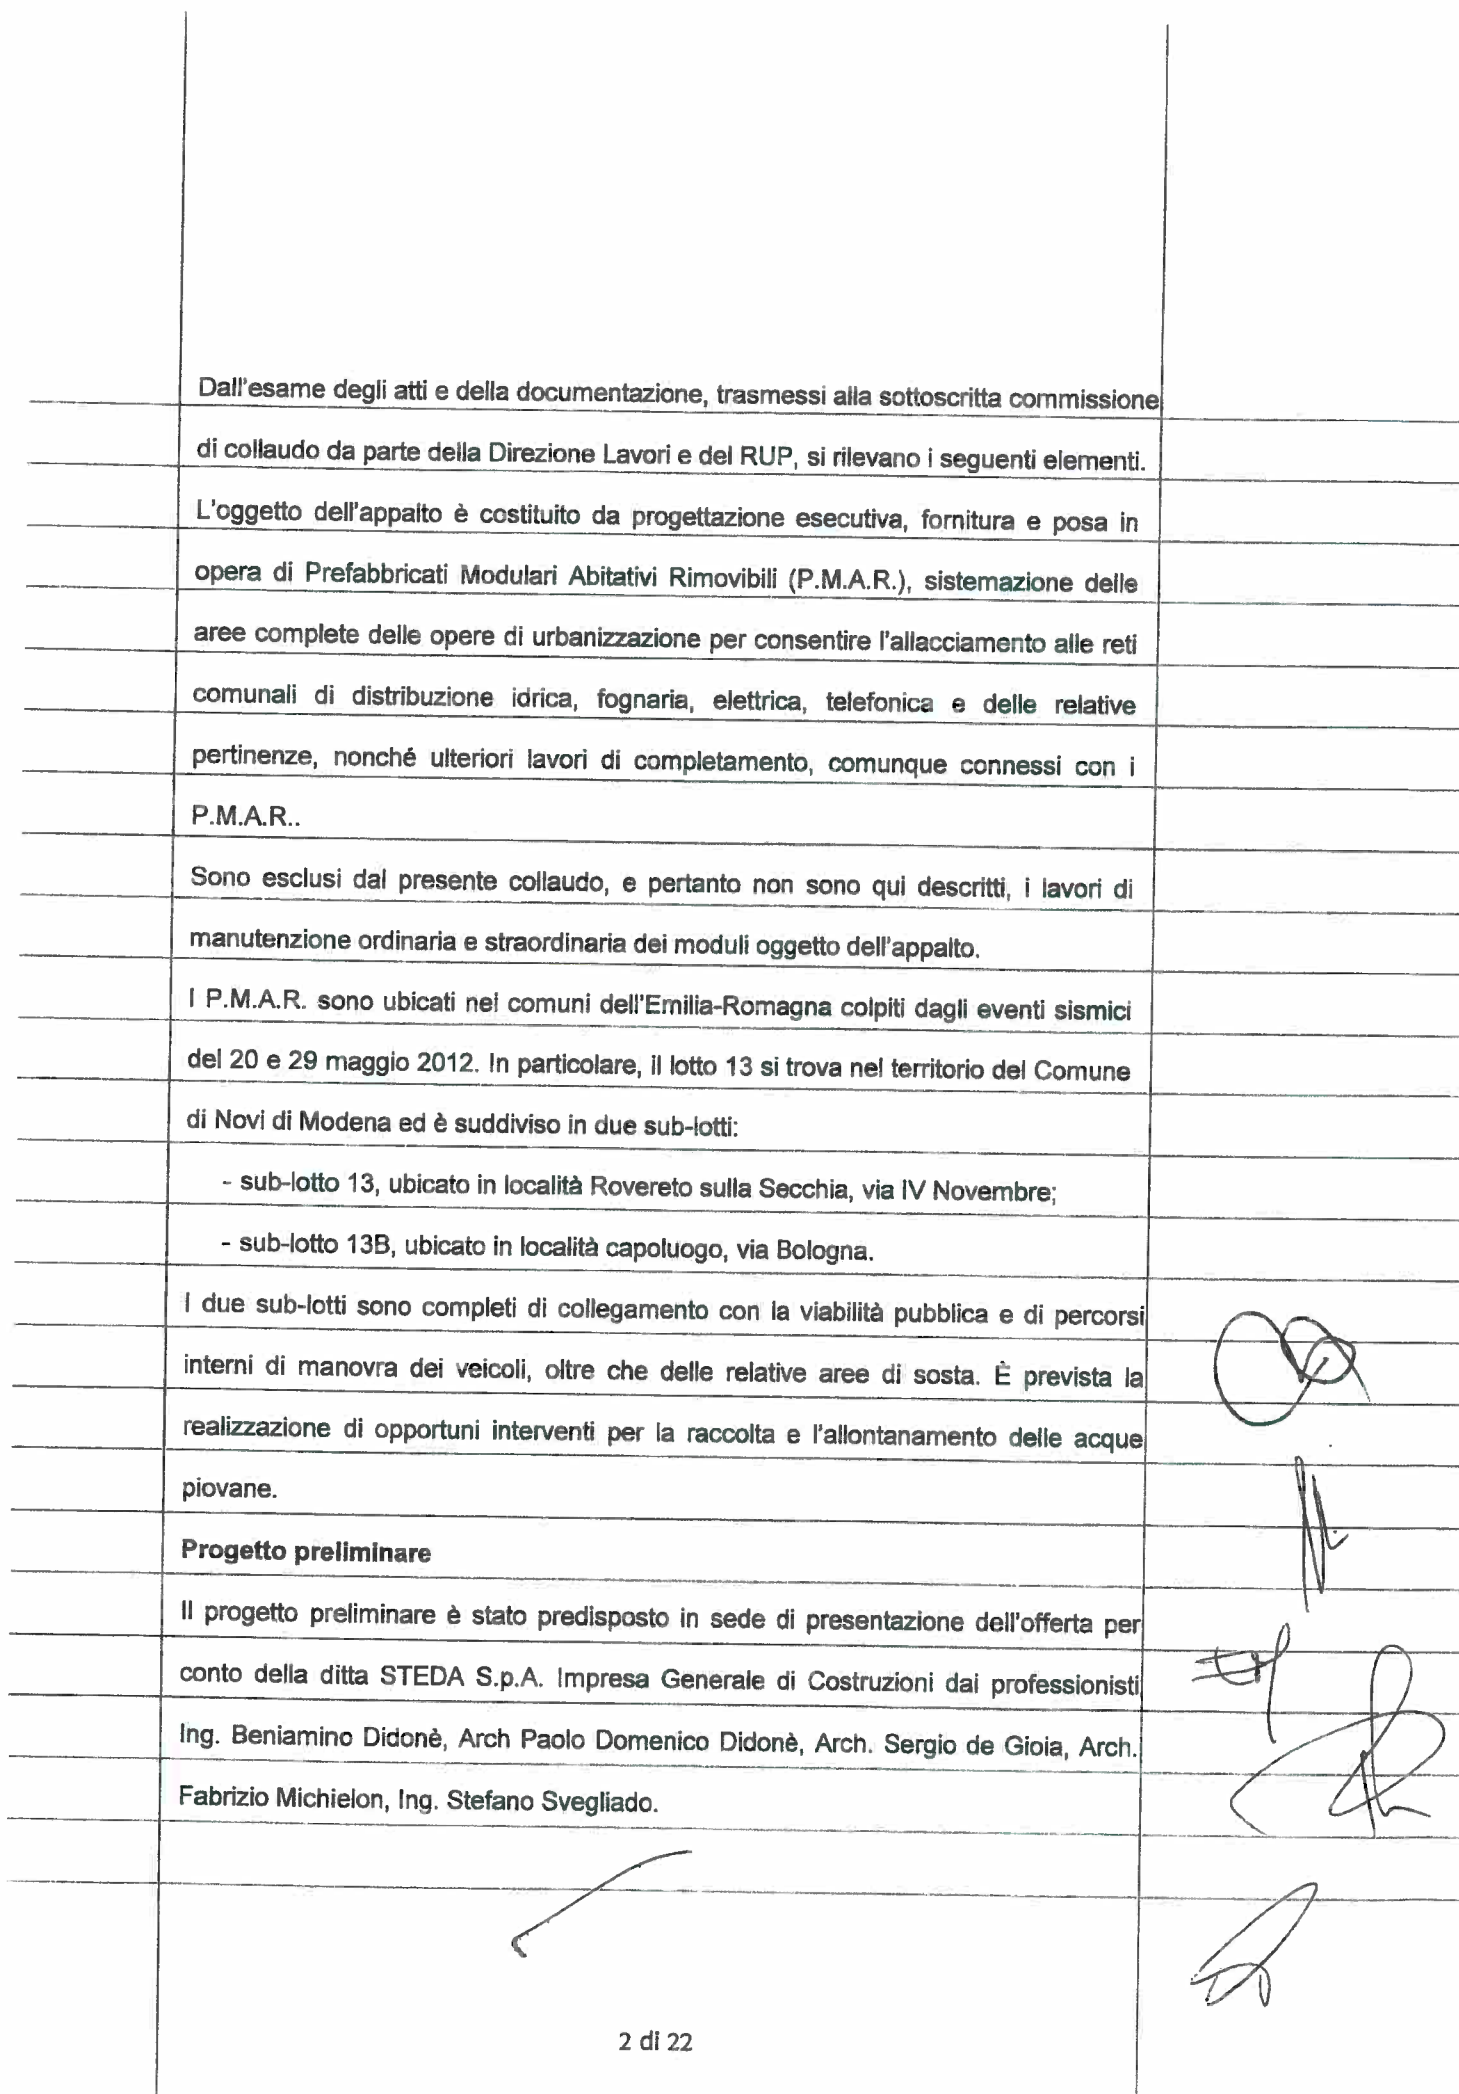 Dall'esame degli atti e della documentazione, trasmessi alla sottoscritta commissione
di collaudo da parte della Direzione Lavori e del RUP, si rilevano i seguenti elementi.
L'oggetto dell'appalto è costituito da progettazione esecutiva, fornitura e posa in
opera di Prefabbricati Modulari Abitativi Rimovibili (P.M.A.R.), sistemazione delle
aree complete delle opere di urbanizzazione per consentire l'allacciamento alle reti
comunali di distribuzione idrica, fognaria, elettrica, telefonica e delle relative
pertinenze, nonché ulteriori lavori di completamento, comunque connessi con i
P.M.A.R..
Sono esclusi dal presente collaudo, e pertanto non sono qui descritti, i lavori di
manutenzione ordinaria e straordinaria dei moduli oggetto dell'appalto.
I P.M.A.R. sono ubicati nei comuni dell'Emilia-Romagna colpiti dagli eventi sismici
del 20 e 29 maggio 2012. In particolare, il lotto 13 si trova nel territorio del Comune
di Novi di Modena ed è suddiviso in due sub-lotti:
- sub-lotto 13, ubicato in località Rovereto sulla Secchia, via IV Novembre;
- sub-lotto 13B, ubicato in località capoluogo, via Bologna.
I due sub-lotti sono completi di collegamento con la viabilità pubblica e di percorsi
interni di manovra dei veicoli, oltre che delle relative aree di sosta. È prevista la
realizzazione di opportuni interventi per la raccolta e l'allontanamento delle acque
piovane.
Progetto preliminare
Il progetto preliminare è stato predisposto in sede di presentazione dell'offerta per
conto della ditta STEDA S.p.A. Impresa Generale di Costruzioni dai professionisti
Ing. Beniamino Didonè, Arch Paolo Domenico Didonè, Arch. Sergio de Gioia, Arch.
Fabrizio Michielon, Ing. Stefano Svegliado.
2 di 22